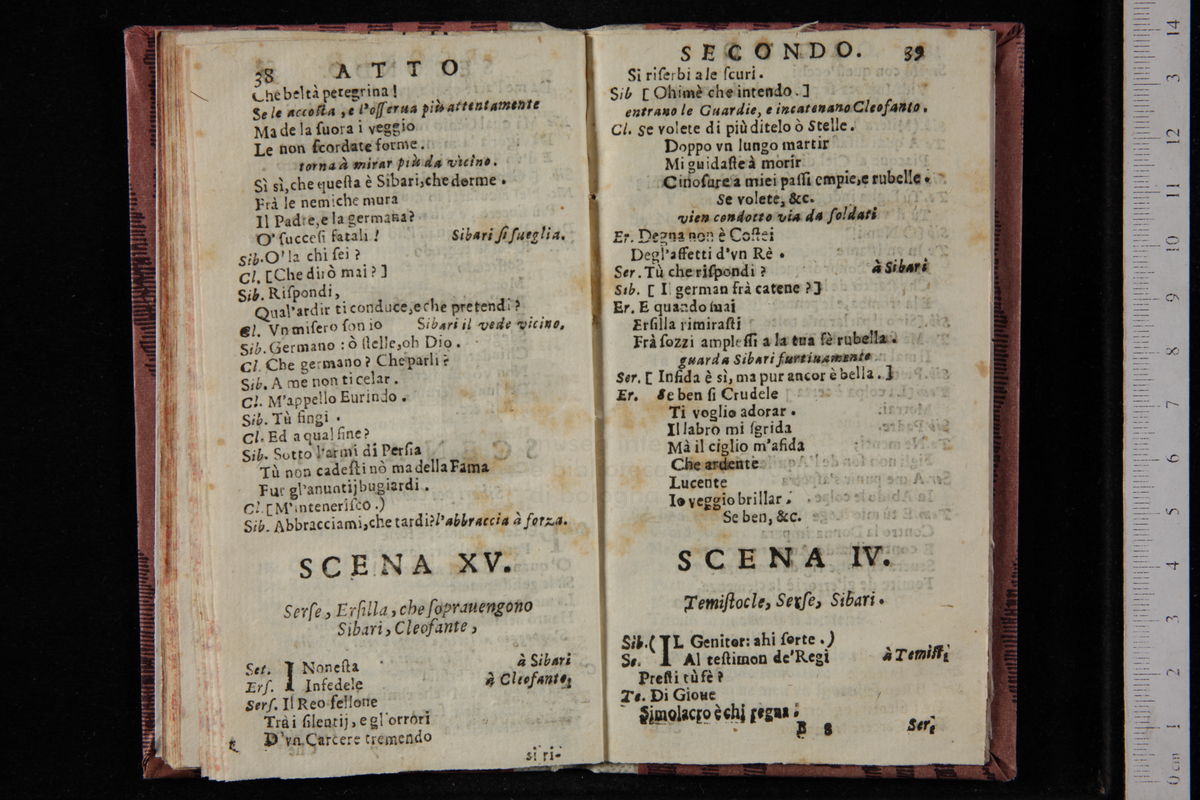 38 ATTO
Che beltà peregrina!
Se le accosta, e l'osserua più attentamente
Ma de la suora i veggio
Le non scordate forme.
torna à mirar più da vicino.
Sì sì, che questa è Sibari, che dorme.
Frà le nemiche mura
Il Padre, e la germana?
O' successi fatali! Sibari si sueglia.
Sib. O' la chi sei?
Cl. [Che dirò mai?]
Sib. Rispondi,
Qual'ardir ti conduce, e che pretendi?
Cl. Vn misero son io Sibari il vede vicino.
Sib. Germano: ò stelle, oh Dio.
Cl. Che germano? Che parli?
Sib. A me non ti celar.
Cl. M'appello Eurindo.
Sib. Tù fingi.
Cl. Ed a qual fine?
Sib. Sotto l'armi di Persia
Tù non cadesti nò ma della Fama
Fur gl'anuntij bugiardi.
Cl. [M'intenerisco.)
Sib. Abbracciami, che tardi? l'abbraccia à forza.
SCENA XV.
Serse, Ersilla, che soprauengono
Sibari, Cleofante,
Set. I Nonesta à Sibari
Ers. Infedele à Cleofante,
Sers. Il Reo fellone
Trà i silentij, e gl'orrori
D'vn Carcere tremendo
si ri-
SECONDO. 39
Si riserbi a le scuri.
Sib [Ohimè che intendo.]
entrano le Guardie, e incatenano Cleofanto.
Cl. Se volete di più ditelo ò Stelle.
Doppo vn lungo martir
Mi guidaste à morir
Cinosure a miei passi empie, e rubelle.
Se volete, &c.
vien condotto via da soldati
Er. Degna non è Costei
Degl'affetti d'vn Rè.
Ser. Tù che rispondi? à Sibari
Sib. [Il german frà catene?]
Er. E quando mai
Ersilla rimirasti
Frà sozzi amplessi a la tua fè rubella.
guarda Sibari furtiuamente
Ser. [Infida è sì, ma pur ancor è bella.]
Er. Se ben si Crudele
Ti voglio adorar.
Il labro mi sgrida
Mà il ciglio m'afida
Che ardente
Lucente
Io veggio brillar.
Se ben, &c.
SCENA IV.
Temistocle, Serse, Sibari.
Sib. (IL Genitor: ahi sorte.)
Se. Al testimon de'Regi à Temist.
Presti tù fè?
Te. Di Gioue
Simolacro è chi regna.
B 8 Ser.